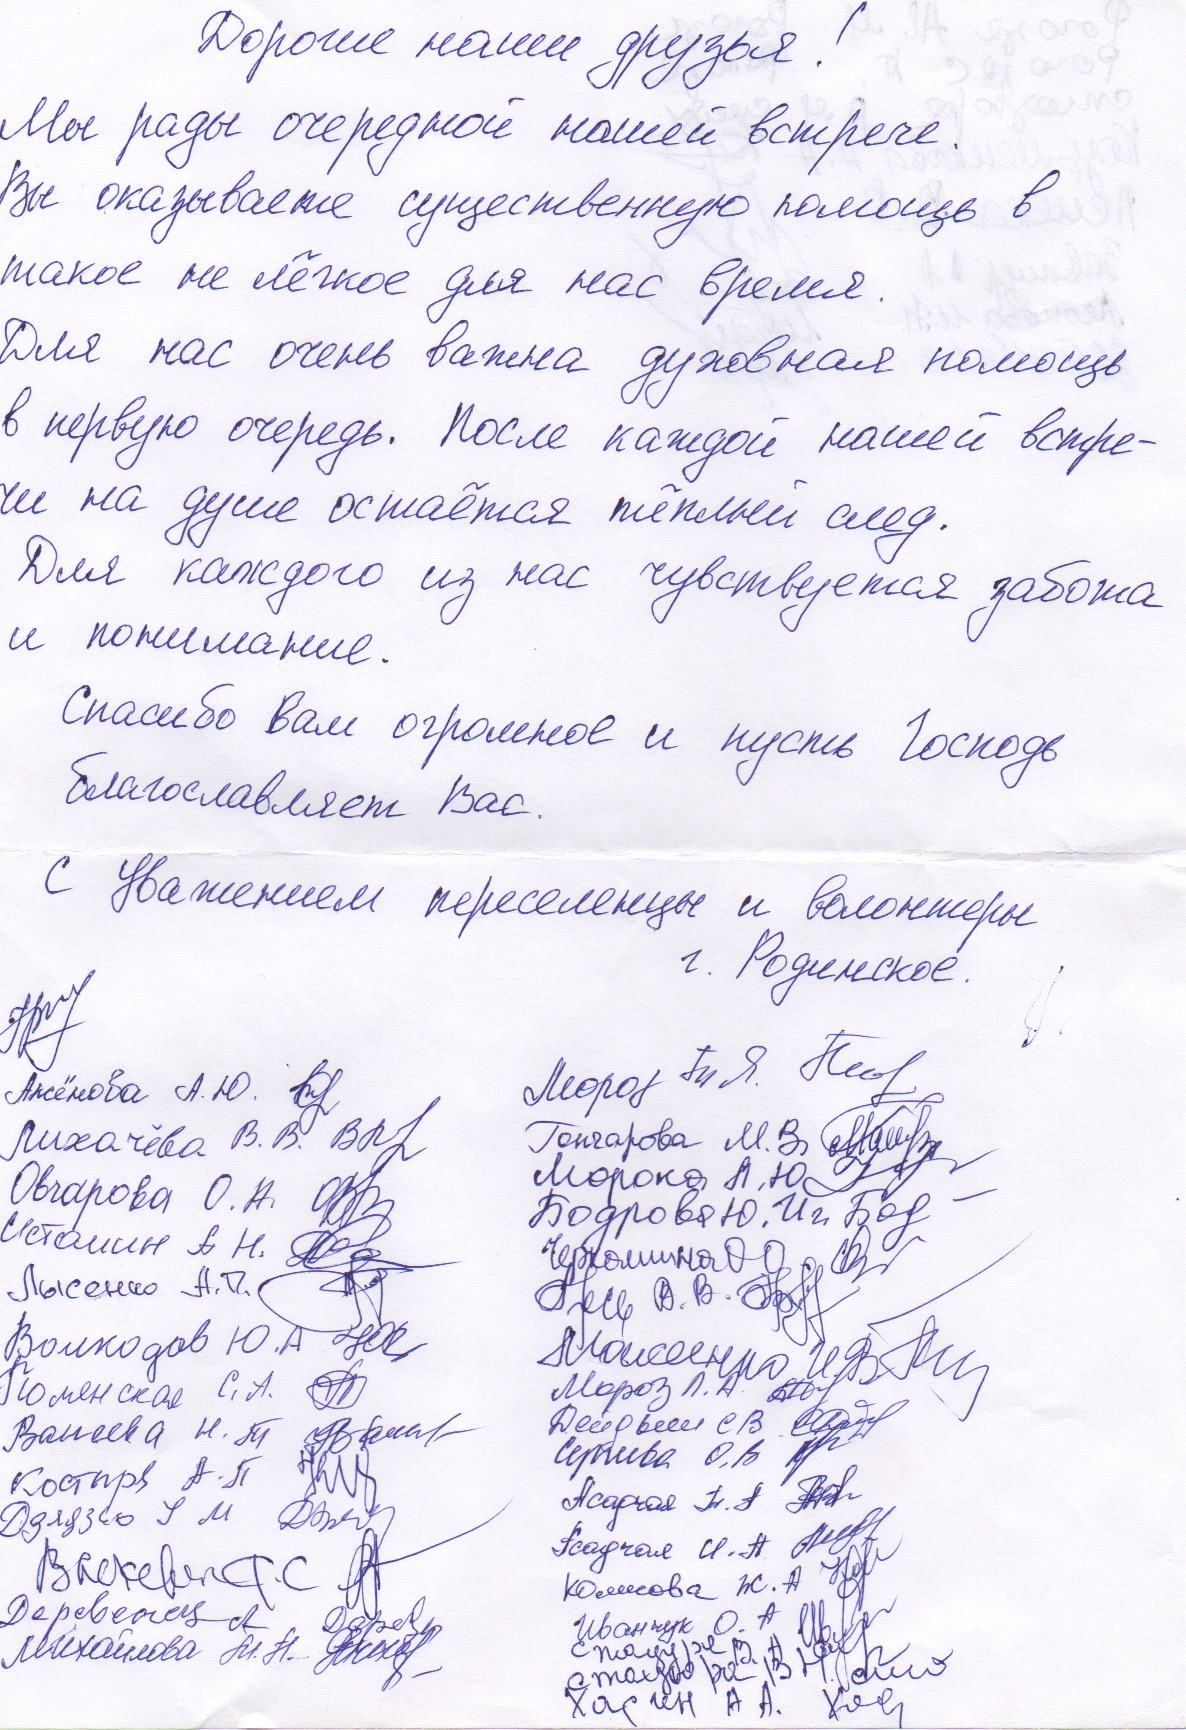 Дорогие наши друзья!
Мы рады очередной нашей встрече.
Вы оказываете существенную помощь в
такое не лёгкое для нас время.
Для нас очень важна духовная помощь
в первую очередь. После каждой нашей встре-
чи на душе остаётся тёплый след.
Для каждого из нас чувствуется забота
и понимание.
Спасибо Вам огромное и пусть Господь
благославляет Вас.
С Уважением переселенцы и волонтеры
г. Родинское.
Аксёнова А.Ю.
Лихачёва В.В.
Овчарова О.А.
Истомин А Н.
Лысенко А.П.
Волкодав Ю.А
Тюменская С.А.
Ванеева Н.Т
Костыря А.П
Дзядзю І М
Т.С
Деревенец А
Михайлова Т.Н.
Мороз Т Я.
Гончарова М.В.
Мороко А.Ю
Бодровая Ю.И.
О О
В.В.
Моисеенко И.В
Мороз Л.А.
С В
О.В
Асадчая Т.А
Асадчая И.А
Комисова Ж.А
Иванчук О.А
В.А
В.
Хасин А А.